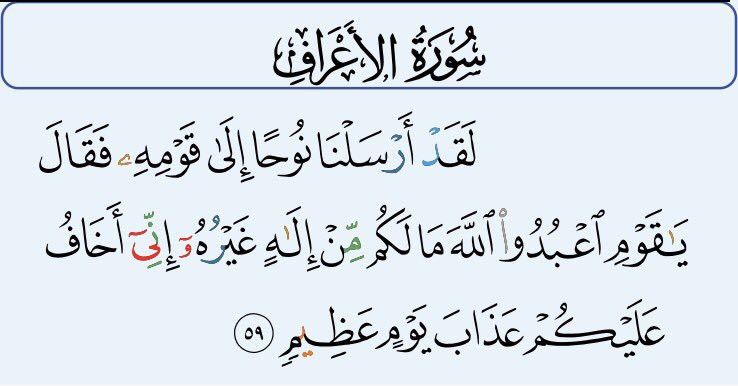 سُورَةُ الأَعْرَافِ
لَقَدْ أَرْسَلْنَا نُوحًا إِلَىٰ قَوْمِهِۦ فَقَالَ
يَـٰقَوْمِ ٱعْبُدُوا۟ ٱللَّهَ مَا لَكُم مِّنْ إِلَـٰهٍ غَيْرُهُۥٓ إِنِّىٓ أَخَافُ
عَلَيْكُمْ عَذَابَ يَوْمٍ عَظِيمٍ ٥٩